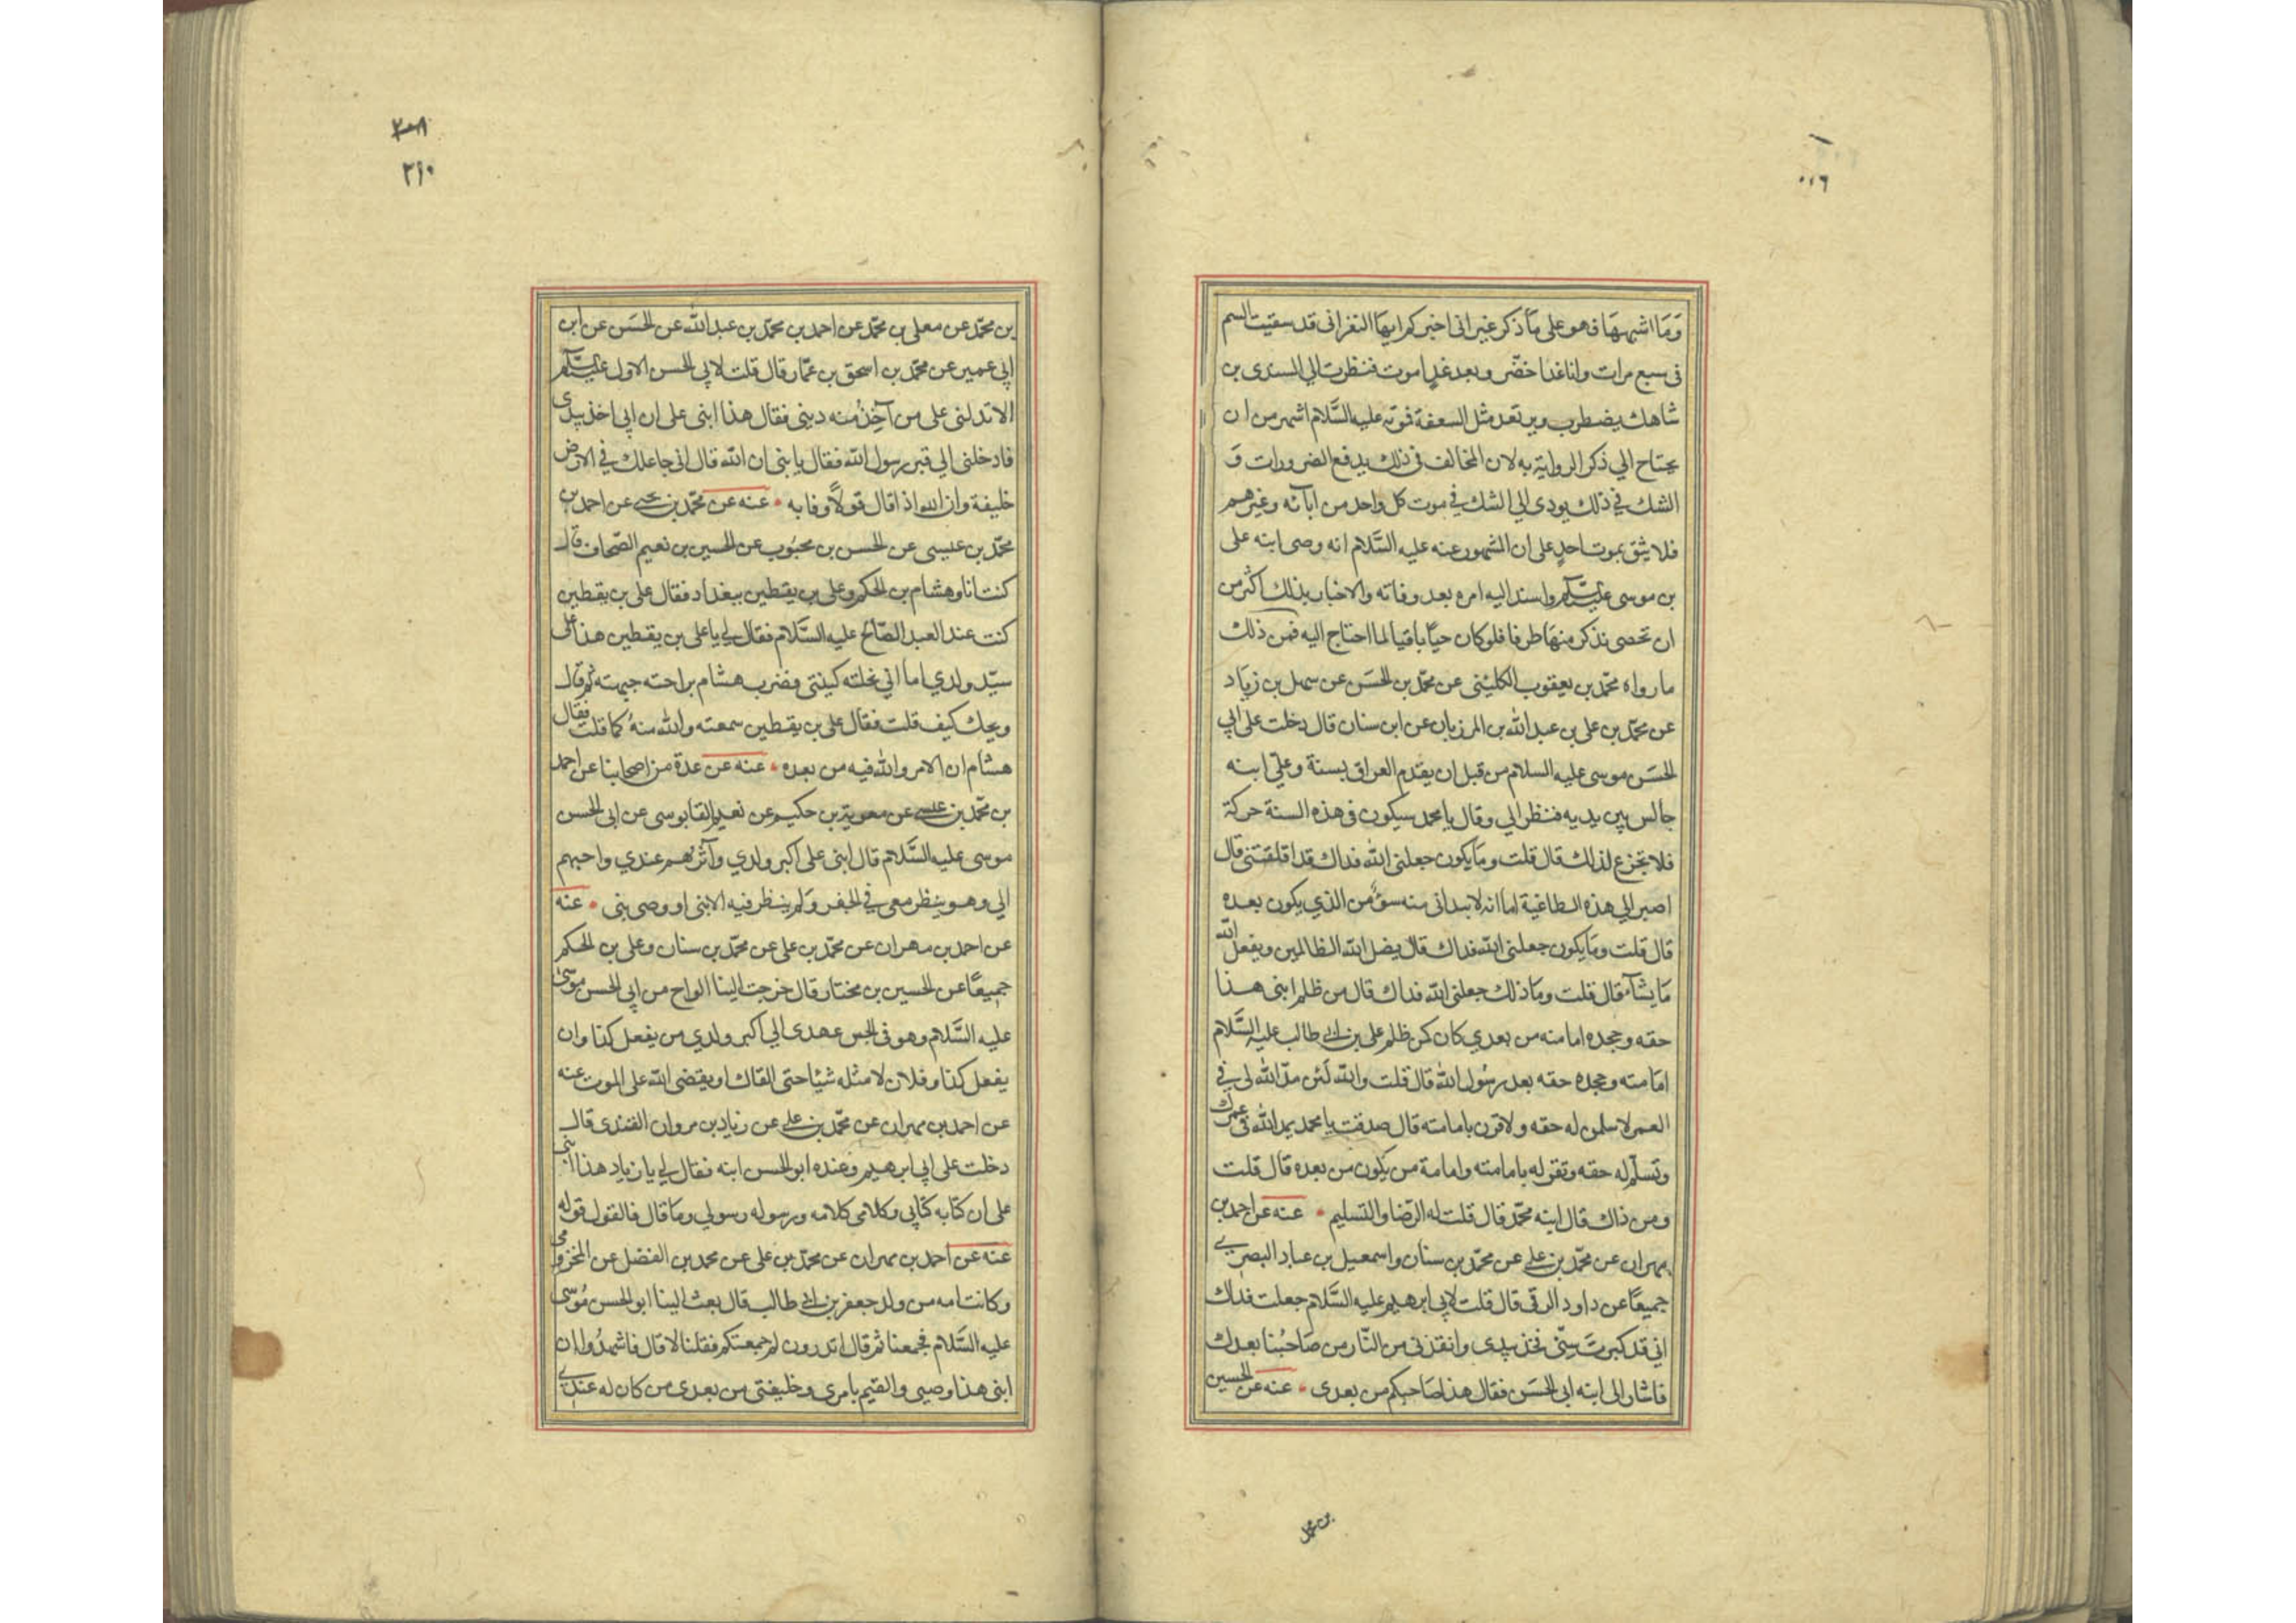 وَمَا اشبهها فهو على مَا ذكر غير انى اخبركم ايها النفر انى قد سقيت السم
فى سبع مرات وانا غدا اخضّر وبعد غدٍ اموت فنظرت الي السندى بن
شاهك يضطرب ويرتعد مثل السعفة فموته عليه السَّلام اشهر من ان
يحتاج الي ذكر الرواية به لان المخالف فى ذلك يدفع الضرورات وَ
الشك في ذلك يودى الي الشك في موت كل واحد من ابآئه وغيرهم
فلا يثق بموت احدٍ على ان المشهور عنه عليه السَّلام انه وصى ابنه على
بن موسى عليه السلام واسند اليه امره بعد وفاته والاخبار بذلك اكثر من
ان تحصى نذكر منهَا طرفا فلو كان حيّا باقيا لما احتاج اليه فمن ذلك
ما رواه محمّد بن يعقوب الكلينى عن محمّد بن الحسَن عن سهل بن زيَاد
عن محمّد بن على بن عبد الله بن المرزبان عن ابن سنان قال دخلت على ابي
الحسَن موسى عليه السلام من قبل ان يقدم العراق بسنة وعلىّ ابنه
جالس بين يديه فنظر الي وقال يا محمد سيكون فى هذه السنة حركة
فلا تجزع لذلك قال قلت ومَا يكون جعلنى الله فداك قد اقلقتنى قال
اصير الي هذه الطاغية اما انه لا يبدانى منه سوٌ ومن الذي يكون بعده
قال قلت ومَا يكون جعلنى الله فداك قال يضل الله الظالمين ويفعل الله
مَا يشآء قال قلت ومَا ذلك جعلنى الله فداك قال من ظلم ابنى هذا
حقه وجحده امامته من بعدي كان كمن ظلم على بن ابي طالب عليه السَّلام
امَامته وجحده حقه بعد رسُول الله قال قلت والله لَئن مدّ الله لى في
العمر لاسلمن له حقه ولاقرن بامامته قال صدقت يا محمد يمد الله فى عمرك
وتسلّم له حقه وتقر له بامامته وامامة من يكون من بعده قال قلت
ومن ذاك قال ابنه محمّد قال قلت له الرّضا والتسليم • عنه عن احمد بن
مهران عن محمّد بن على عن محمّد بن سنان واسمعيل بن عباد البصري
جميعًا عن داود الرقى قال قلت لابي ابرهيم عليه السَّلام جعلت فداك
اني قد كبرت سِنّى فخذ بيدى وانقذنى من النّار من صَاحبُنا بعدك
فاشار الى ابنه ابى الحسَن فقال هذا صَاحبكم من بعدى • عنه عن الحسين
بن محمد
٢٠٨
٢١٠
بن محمّد عن معلى بن محمّد عن احمد بن محمّد بن عبد الله عن الحسَن عن ابن
ابي عمير عن محمّد بن اسحق بن عمّار قال قلت لابي الحسن الاول عليه السلام
الا تدلنى على من آخِذُ منه دينى فقال هذا ابنى على ان ابي اخذ بيدى
فادخلنى الي قبر رسول الله فقال يا بنى ان الله قال انى جاعلك في الارض
خليفة وان الله اذا قال قولاً وفا به • عنه عن محمّد بن يحيى عن احمد بن
محمّد بن عيسى عن الحسن بن محبُوب عن الحسين بن نعيم الصّحاف قال
كنت انا وهشام بن الحكم وعلى بن يقطين ببغداد فقال على بن يقطين
كنت عند العبد الصّالح عليه السَّلام فقال لي يا على بن يقطين هذا على
سيّد ولدي اما اني نحلته كنيتى فضرب هشام براحته جبهته ثم قال
ويحك كيف قلت فقال على بن يقطين سمعته والله منهُ كما قلت فقال
هشام ان الامر والله فيه من بعده • عنه عن عدة من اصحابنا عن احمد
بن محمّد بن عيسى عن معوية بن حكيم عن نعيم القابوسى عن ابى الحسن
موسى عليه السَّلام قال ابنى على اكبر ولدي وآثرهم عندي واحبهم
الي وهو ينظر معى في الجفر وَلم ينظر فيه الا نبى او وصى نبى • عنه
عن احمد بن مهران عن محمّد بن على عن محمّد بن سنان وعلى بن الحكم
جميعًا عن الحسين بن مختار قال خرجت الينا الواح من ابي الحسن موسى
عليه السَّلام وهو فى الحبس عهدى الي اكبر ولدي من يفعل كذا وان
يفعل كذا وفلان لا مثله شيئا حتى القاك او يقضى الله على الموت عنه
عن احمد بن مهران عن محمّد بن على عن زياد بن مروان القندى قال
دخلت على ابي ابرهيم وعنده ابو الحسن ابنه فقال لي يا زياد هذا ابنى
على ان كتابه كتابي وكلامى كلامه ورسوله رسولي ومَا قال فالقول قوله
عنه عن احمد بن مهران عن محمّد بن على عن محمد بن الفضل عن المخزومى
وكانت امه من ولد جعفر بن ابي طالب قال بعث الينا ابو الحسن مُوسى
عليه السَّلام فجمعنا ثم قال اتدرون لم جمعتكم فقلنا لا قال فاشهدُوا ان
ابنى هذا وصيى والقيم بامرى وخليفتى من بعدى من كان له عندي